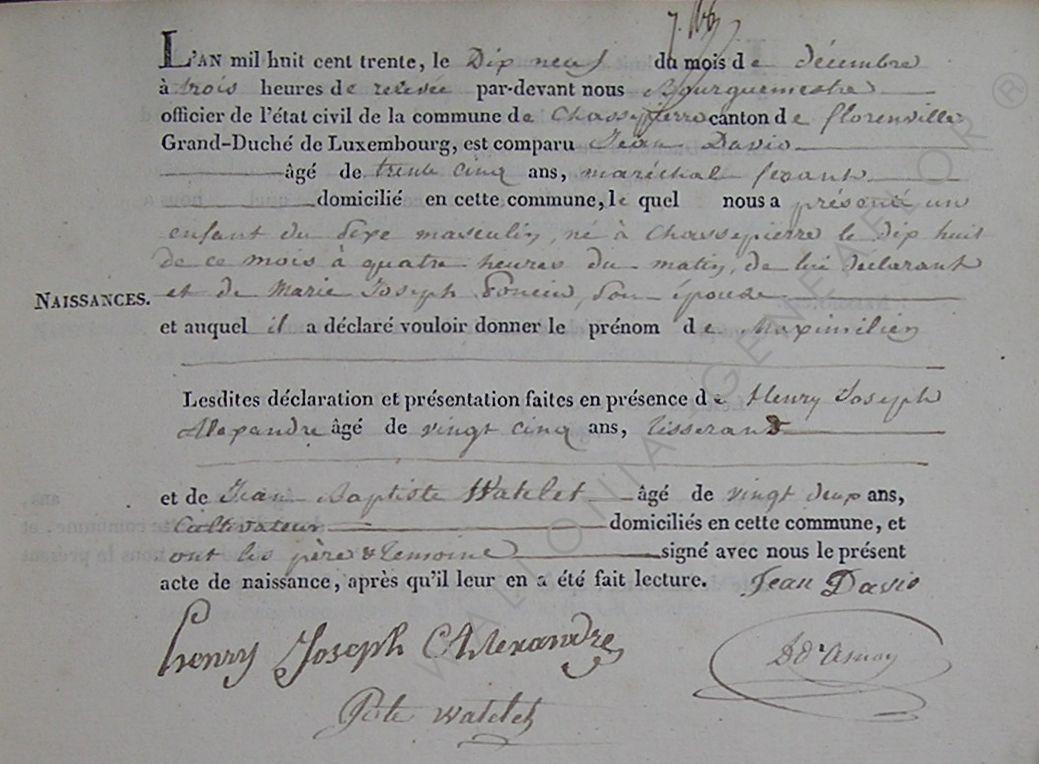 L'AN mil huit cent trente, le Dix neuf du mois de décembre
à trois heures de relevée par-devant nous Bourguemestre
officier de l'état civil de la commune de Chassepierre canton de florenville
Grand-Duché de Luxembourg, est comparu Jean Davio
âgé de trente cinq ans, maréchal ferant
domicilié en cette commune, le quel nous a présenté un
enfant du sexe masculin, né à Chassepierre le dix huit
de ce mois à quatre heures du matin, de lui déclarant
NAISSANCES. et de Marie Joseph Poncin, son épouse
et auquel il a déclaré vouloir donner le prénom de Maximilien
Lesdites déclaration et présentation faites en présence de Henry Joseph
Alexandre âgé de vingt cinq ans, tisserand
et de Jean Baptiste Watelet âgé de vingt deux ans,
Cultivateur domiciliés en cette commune, et
ont les père & temoins signé avec nous le présent
acte de naissance, après qu'il leur en a été fait lecture. Jean Davio
henry Joseph Alexandre
Watelet
WALLONIA GENFAFLOR ®